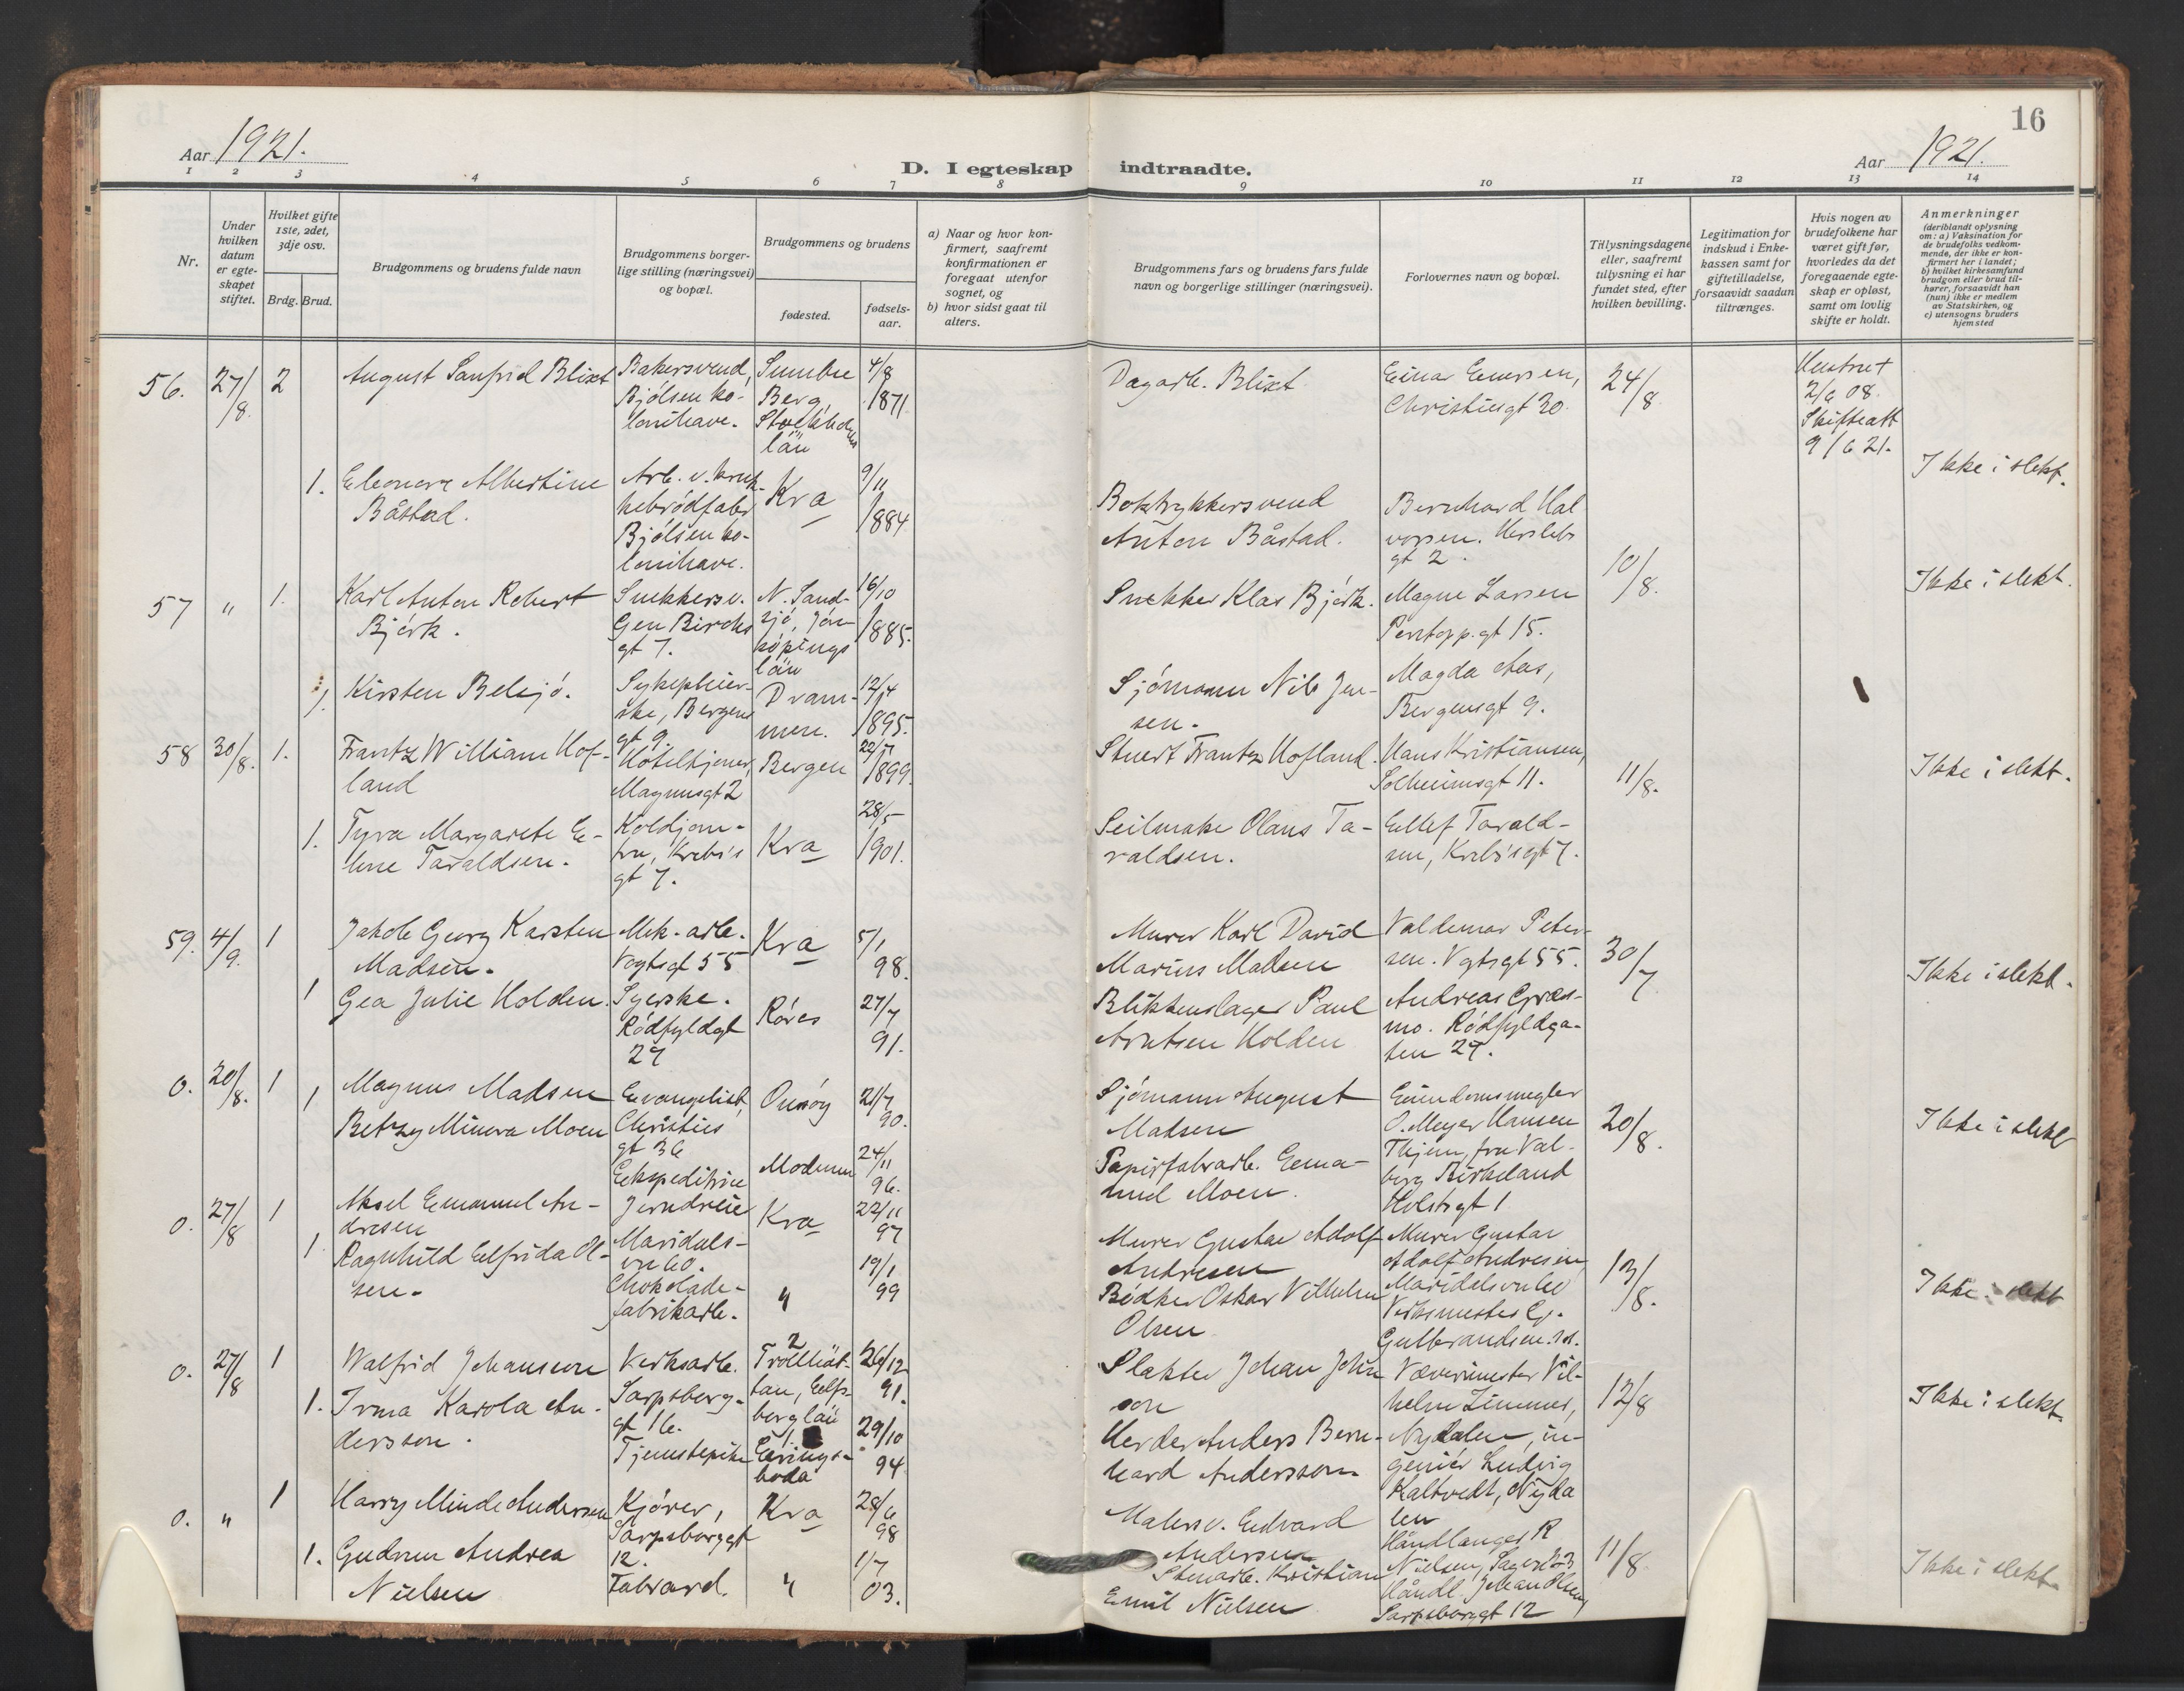 16
Aar 1921.
D. I egteskap indtraadte.
Aar 1921.
1 2 3 4 5 6 7 8 9 10 11 12 13 14
Nr.
Under hvilken datum er egteskapet stiftet.
Hvilket gifte 1ste, 2det, 3dje osv.
Brdg. Brud.
Brudgommens og brudens fulde navn
Brudgommens borgerlige stilling (næringsvei) og bopæl.
Brudgommens og brudens
fødested.
fødselsaar.
a) Naar og hvor konfirmert, saafremt konfirmationen er foregaat utenfor sognet, og
b) hvor sidst gaat til alters.
Brudgommens fars og brudens fars fulde navn og borgerlige stillinger (næringsvei).
Forlovernes navn og bopæl.
Tillysningsdagene eller, saafremt tillysning ei har fundet sted, efter hvilken bevilling.
Legitimation for indskud i Enkekassen samt for giftetilladelse, forsaavidt saadan tiltrænges.
Hvis nogen av brudefolkene har været gift før, hvorledes da det foregaaende egteskap er opløst, samt om lovlig skifte er holdt.
Anmerkninger (deriblandt oplysning om: a) Vaksination for de brudefolks vedkommende, der ikke er konfirmert her i landet; b) hvilket kirkesamfund brudgom eller brud tilhører, forsaavidt han (hun) ikke er medlem av Statskirken, og c) utensogns bruders hjemsted
56. 27/8. 2
August Sanfrid Blixt
Bakersvend,
Bjölsen ko-
lonihave.
Berg,
län
4/8
1871.
Dagarb. Blixt
Einar Evensen,
Christiesgt 30.
24/8
2/6 08.
Skifteatt
9/6 21.
Ikke i slekt.
1. Eleonore Albertine
Båstad.
Arb. v.
Bjölsen ko-
lonihave.
Kra
9/11
1884
Boktrykkersvend
Anton Båstad.
Bernhard Hal
vorsen. Herslebs
gt 2.
57 " 1.
Karl Anton Robert
Björk.
Snekkersv.
Gen Birchs
gt 7.
N. Sand-
sjö, Jön-
köpings
län
16/10
1885.
Snekker Klas Björk.
Magne Larsen
gt 15.
10/8.
Ikke i slekt.
1. Kirsten Belsjö.
Sykepleier-
ske, Bergens
gt 9.
Dram-
men.
12/4
1895.
Sjömann Nils Jen-
sen.
Magda Aas,
Bergensgt 9.
58 30/8. 1.
Frantz William Hof-
land
Hoteltjener,
Magnusgt 2
Bergen
22/7
1899.
Stuert Frantz Hofland.
Hans Kristiansen,
Solheimsgt 11.
11/8.
Ikke i slekt.
1. Tyra Margarete E-
line Taraldsen.
Koldjom-
fru, Krebs's
gt 7.
Kra
28/5
1901.
Seilmaker Olaus Ta-
raldsen.
Eellef Tarald-
sen, Krebs's gt 7.
59. 4/9. 1
Jakob Georg Karsten
Madsen.
Mek. arb.
Vogtsgt 55
Kra
5/1
98.
Murer Karl David
Marius Madsen
Valdemar Peter-
sen. Vogtsgt 55.
30/7
Ikke i slekt.
1 Gea Julie Holden.
Syerske.
Rödfyldgt
27
Röros
27/7
91.
Blikkenslager Paul
Arntsen Holden
Andreas Græs-
mo. Rödfyldga-
ten 27.
0. 20/8. 1
Magnus Madsen
Evangelist,
Christies
gt 36
Onsöy
21/7
90.
Sjömann August
Madsen
Eiendomsmegler
O. Meyer Hansen
20/8.
Ikke i slekt
1 Betzy Minera Moen
Ekspeditrice
Modum
24/11
96.
Papirfabrarb. Eema-
nuel Moen.
Thjem, fru Val-
borg Birkeland
Holstsgt 1
0. 27/8 1
Aksel Emanuel An-
dresen
Jerndreier
Maridals-
vn 60.
Kra
22/11
97
Murer Gustav Adolf
Andresen
Murer Gustav
Adolf Andresen
Maridalsvn 60
13/8.
Ikke i slekt
1. Ragnhild Eelfrida Ol-
sen.
Chokolade-
fabrikarb.
"
19/1
99
Bödker Oskar Vilhelm
Olsen
Verksmester
Gulbrandsen
0. 27/8 1
Walfrid Johansson
Verksarb.
Sarpsborg-
gt 16.
2
Trollhät-
tan, Eelfs-
borg län
26/12
91.
Slakter Johan Johns
son
Væverimester Vil-
helm Zimmer,
Nydalen, in-
12/8
Ikke i slekt.
1. Irma Karola An-
dersson.
Tjenestepike
1.
Eeringsboda
29/10
94
Herder Anders Bern-
hard Andersson
geniör Ludvig
Kaltvedt, Nyda
len
0. " 1
Harry Minde Andersen
Kjörer,
Sarpsborggt
12.
Kra
28/6
98
Malersv. Eedvard
Andersen
Håndlanger R
Nielsen,
11/8
Ikke i slekt.
1. Gudrun Andrea
Nielsen
Fabrarb.
"
1/7
03.
Stenarb. Kristian
Emil Nielsen
Håndl. Johan Olsen,
Sarpsborggt 12